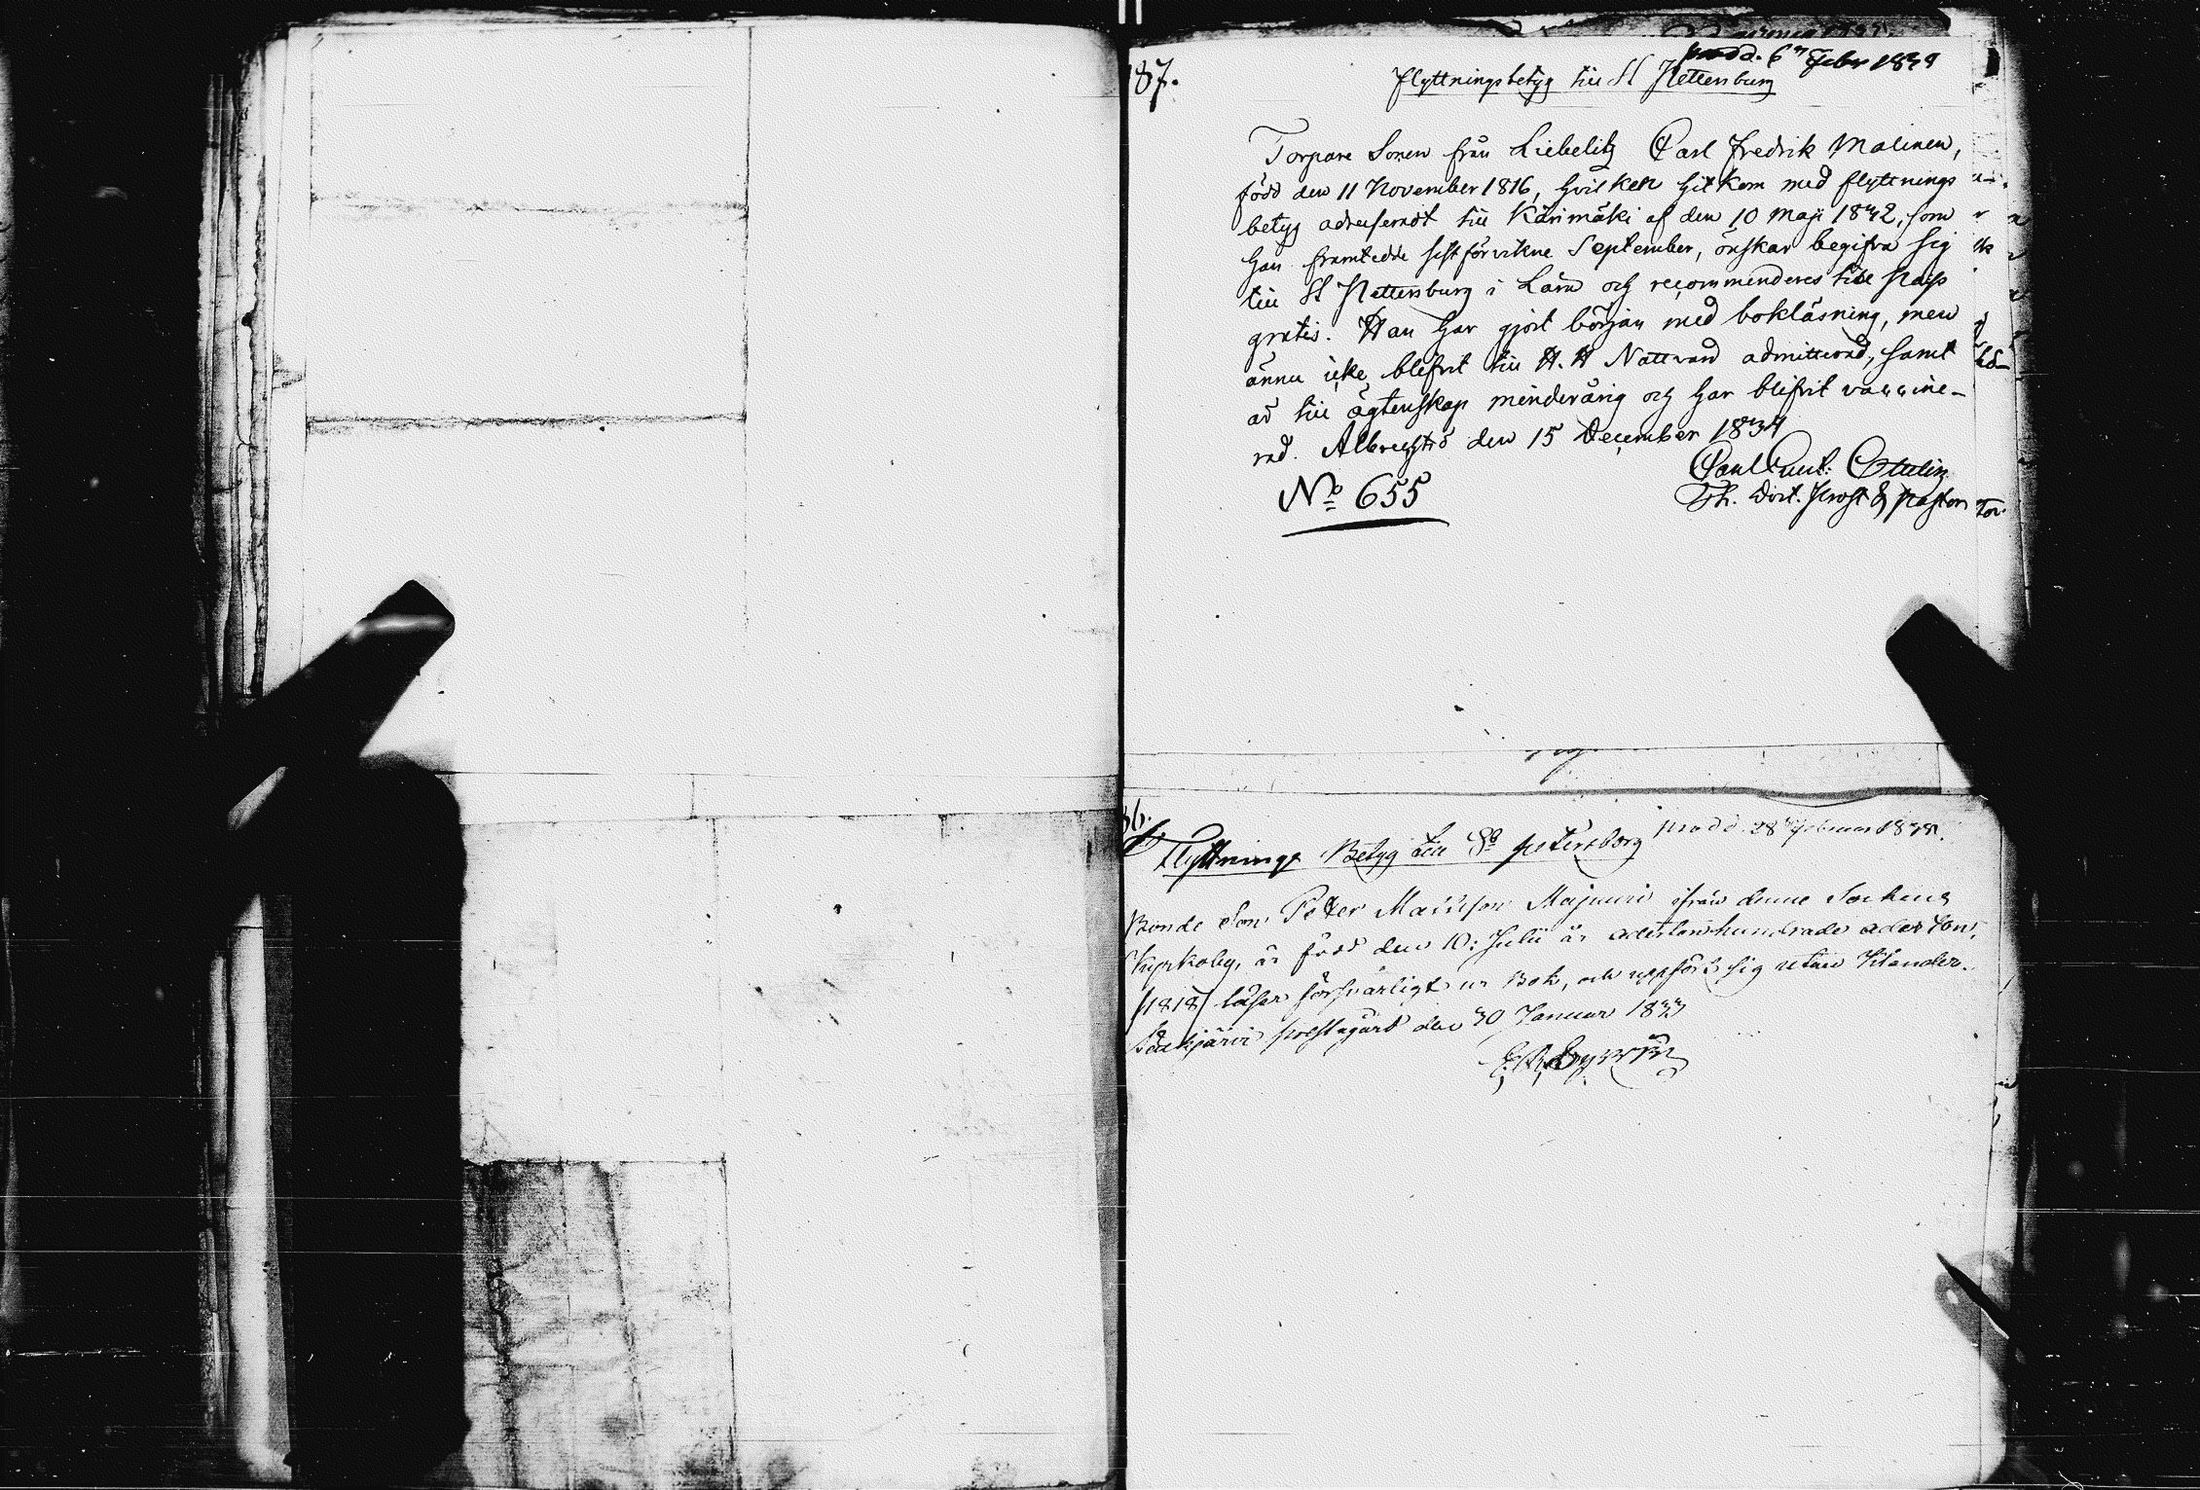 187.
prodd. 6n Febr 183
Flyttningsbetyg till St Pettersburg
Torpare Sonen från Liebelitz Carl Fredrik Malinen,
född den 11 November 1816, hvilken hitkom med flyttnings
betyg adresseradt till Kärimäki af den 10 Maji 1832, som
han framtedde sistförvikne September, önskar begifva sig
till St Pettersburg i Lära och recommenderes till Pass
gratis. Han har gjort början med bokläsning, men
ännu icke blifvit till H. H Nattvard admitterad, samt
är till ägtenskap minderårig och har blifvit vaccine-
rad. den 15 December 183
No 655
Th. Doct. Prost & Pastor
36.
Flyttnings Betyg till St Petersborg prodd. 28 Februar 183
Bonde Son Peter Mattsson Majuuri ifrån denne Sockens
Kyrkoby, är född den 10: Julii år adertonhundrade aderton,
/1818/ läser försvarligt ur Bok, och uppfört sig utan klander.
Säkjärvi prestagård den 30 Januar 1833